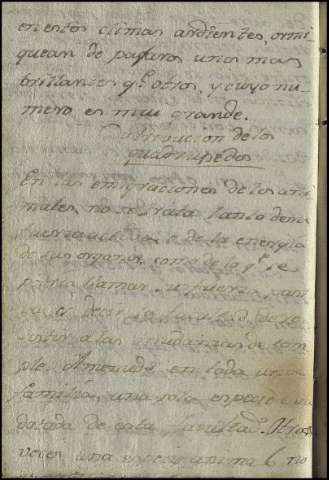 en estos climas ardientes, ormi
guean de pajaros unos mas
brillantes q.e otros, y cuyo nu
mero es muy grande.
de los
quadrupedos
En las emigraciones de los ani
males, no se trata tanto de su
fuerza o de la energia
de sus organos, como de lo q.e se
podria llamar su fuerza
decir la facultad de re
sistir a las mudanzas de tem
ple. Amenudo en toda una
familia, una sola especie es
dotada de esta facultad. Otras
veces una especie anima